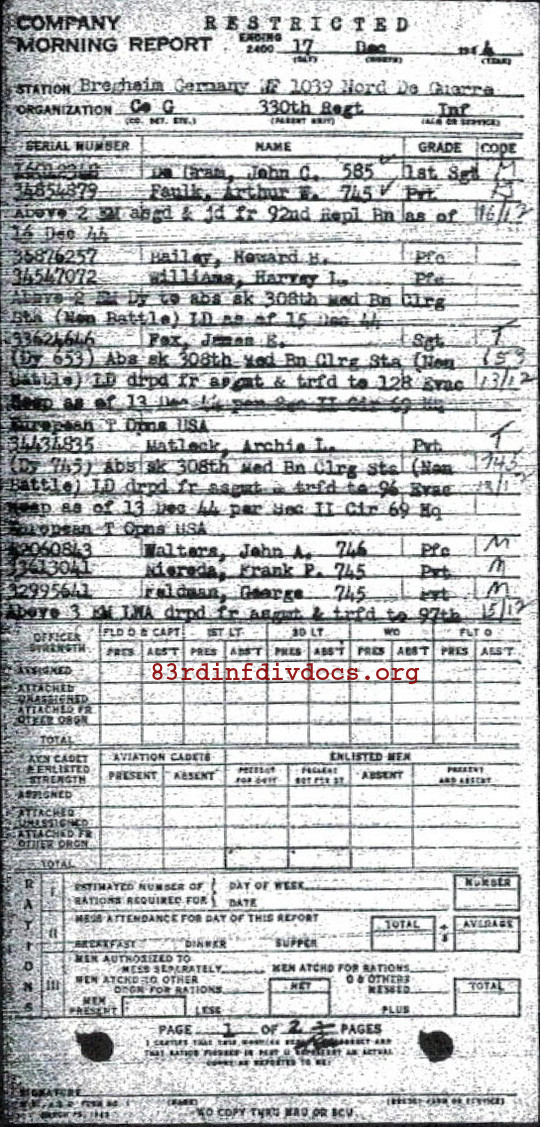 COMPANY RESTRICTED
MORNING REPORT ENDING 2400 17 Dec 1944
(DAY) (MONTH) (YEAR)
STATION Bregheim Germany 1039 Nord De Guerre
ORGANIZATION Co G 330th Regt Inf
(CO. DET. ETC.) (PARENT UNIT) (ARM OR SERVICE)
SERIAL NUMBER NAME GRADE CODE
John C. 585 1st Sgt M
34854879 Faulk, Arthur W. 745 Pvt M
Above 2 EM asgd & jd fr 92nd Repl Bn as of 16/12
16 Dec 44
36876257 Bailey, Howard H. Pfc
34547072 Williams, Harvey L. Pfc
Above 2 EM Dy to abs sk 308th Med Bn Clrg
Sta (Non Battle) LD as of 15 Dec 44
33624646 Fox, James E. Sgt T
(Dy 653) Abs sk 308th Med Bn Clrg Sta (Non 653
Battle) LD drpd fr asgmt & trfd to 128 Evac 13/12
Hosp as of 13 Dec 44 per Sec II Cir 69 Hq
European T Opns USA
34434835 Matlock, Archie L. Pvt T
(Dy 745) Abs sk 308th Med Bn Clrg Sta (Non 745
Battle) LD drpd fr asgmt & trfd to 96 Evac 13/12
Hosp as of 13 Dec 44 per Sec II Cir 69 Hq
European T Opns USA
Walters, John A. 746 Pfc M
33613041 Frank P. 745 Pvt M
32995641 Feldman, George 745 Pvt M
Above 3 EM LWA drpd fr asgmt & trfd to 97th 15/12
OFFICER STRENGTH FLD O & CAPT 1ST LT 2D LT WO FLT O
PRES ABS'T PRES ABS'T PRES ABS'T PRES ABS'T PRES ABS'T
ASSIGNED
83rdinfdivdocs.org
ATTACHED UNASSIGNED
ATTACHED FR OTHER ORGN
TOTAL
AVN CADET & ENLISTED STRENGTH AVIATION CADETS ENLISTED MEN
PRESENT ABSENT PRESENT FOR DUTY PRESENT NOT FOR DY ABSENT PRESENT AND ABSENT
ASSIGNED
ATTACHED UNASSIGNED
ATTACHED FR OTHER ORGN
TOTAL
RATIONS
I ESTIMATED NUMBER OF RATIONS REQUIRED FOR DAY OF WEEK DATE NUMBER
II MESS ATTENDANCE FOR DAY OF THIS REPORT TOTAL ÷ 3 AVERAGE
BREAKFAST DINNER SUPPER
III MEN AUTHORIZED TO MESS SEPARATELY MEN ATCHD FOR RATIONS
MEN ATCHD TO OTHER ORGN FOR RATIONS NET O & OTHERS MESSED TOTAL
MEN PRESENT LESS PLUS
PAGE 1 OF 2 PAGES
I CERTIFY THAT THIS MORNING REPORT IS CORRECT AND
THAT RATION FIGURES IN PART II REPRESENT AN ACTUAL
COUNT AS REPORTED TO ME:
SIGNATURE
NO COPY THRU MRU OR BCU